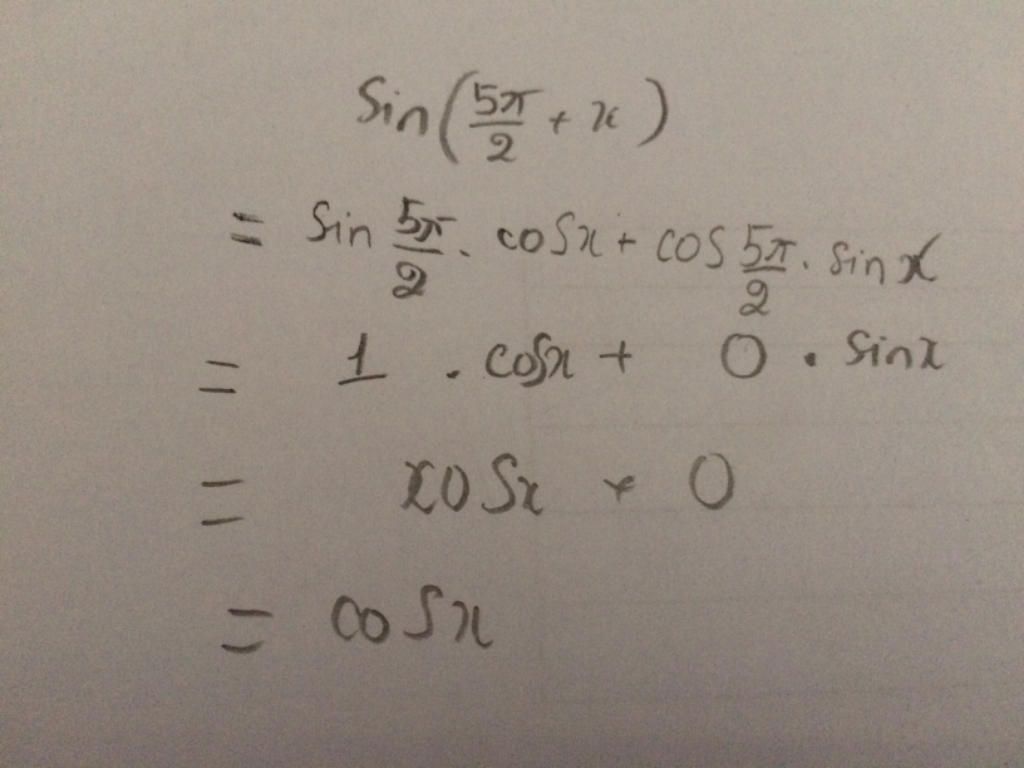 Sin(5π/2 + x)
= Sin 5π/2 . cosx + cos 5π/2 . sin x
= 1 . cosx + 0 . Sinx
= cosx + 0
= cosx